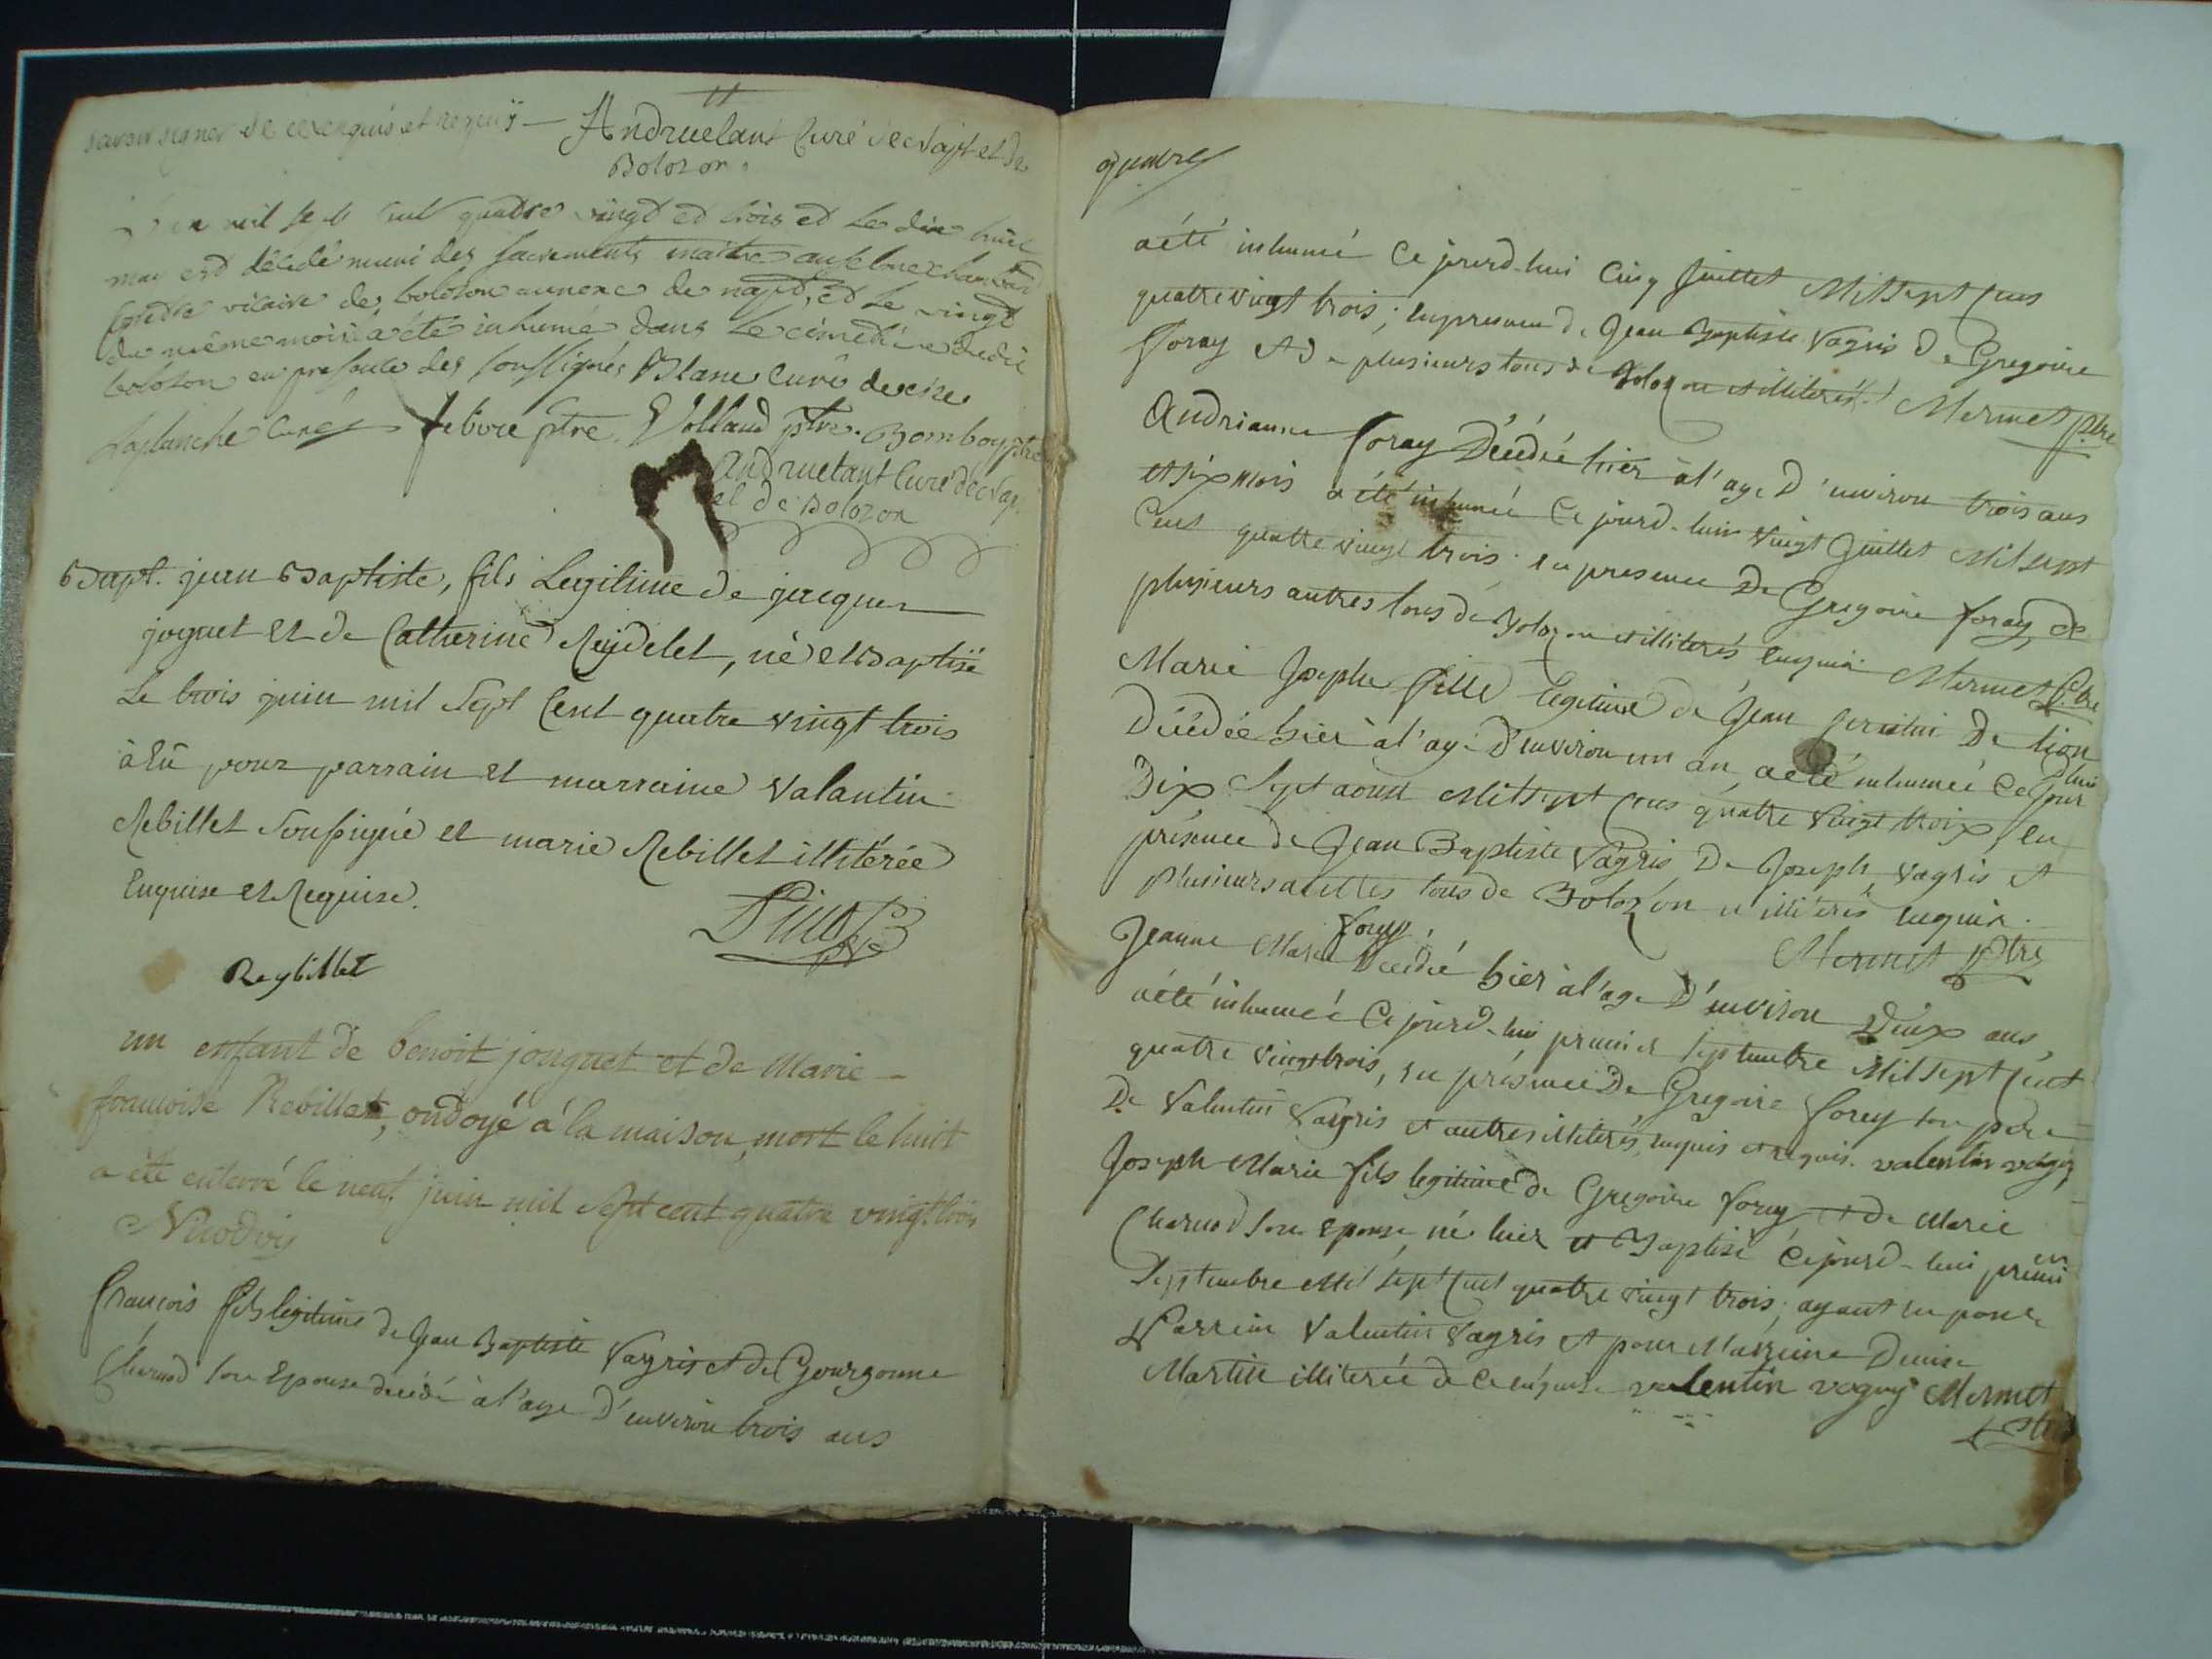 savoir signer de ce enquis et requis — Andruetant Curé de et de
Bolozon.
mil sept cent quatre vingt et trois et le dix huit
mai est décédé muni des sacrements maitre
prêtre vicaire de bolozon annexe de napt, et le vingt
du même mois a été inhumé dans le cimetière dudit
bolozon en presence des soussignés Blanc Curé de cize
Laplanche Curé febvre ptre. Volland ptre. Bomboy ptre
Andruetant Curé de nap.
et de Bolozon
Bapt. jean Baptiste, fils Legitime de jacques
joguet et de Catherine Reydelet, né et Baptisé
Le trois juin mil sept Cent quatre vingt trois
à Eû pour parrain et marraine Valantin
Rebillet Soussigné et marie Rebillet illitérée
Enquise et Requise.
Reybillet
un enfant de benoit jouguet et de Marie-
françoise Rebillet, ondoyé à la maison, mort le huit
a été enterré le neuf juin mil sept cent quatre vingt trois
françois fils legitime de Jean Baptiste Vagris et de Gourgonne
Charnod son Epouse decédé à l'age D'environ trois ans
quatre
a été inhumé Ce jourd-hui Cinq Juillet Mil Sept Cens
quatre vingt trois; en presence de Jean Baptiste Vagris De Gregoire
foray et de plusieurs tous de Bolozon et illiterés. Mermet Ptre
Andrianne foray Décédée hier à l'age D'environ trois ans
et six mois a été inhumée Ce jourd-hui vingt Juillet Mil Sept
Cent quatre vingt trois en presence De Gregoire foray, de
plusieurs autres tous de Bolozon et illiterés enquis Mermet Ptre
Marie Josephe fille legitime de Jean De lion
Décédée hier à l'age D'environ un an a été inhumée Ce jour
dhui
Dix Sept aoust Mil Sept Cens quatre vingt troix, en
présence de Jean Baptiste Vagris, De Joseph Vagris et
Plusieurs autres tous de Bolozon et illiterés enquis.
Mermet Ptre
foray.
Jeanne Marie Decedée hier à l'age D'environ Deux ans,
a été inhumée Ce jourd-hui premier Septembre Mil Sept Cent
quatre vingt trois, en présence De Gregoire forey son pere
De Valentin Vagris et autres illiterés enquis et requis. valentin vagry
Joseph Marie fils legitime de Gregoire forey et de Marie
Charnod son Epouse, né hier et Baptisé Ce jourd-hui premier
Septembre Mil Sept Cent quatre vingt trois; ayant eu pour
Parrein Valentin Vagris et pour Marreine Denise
Martin illiterée de Ce enquise valentin vagry Mermet
Ptre